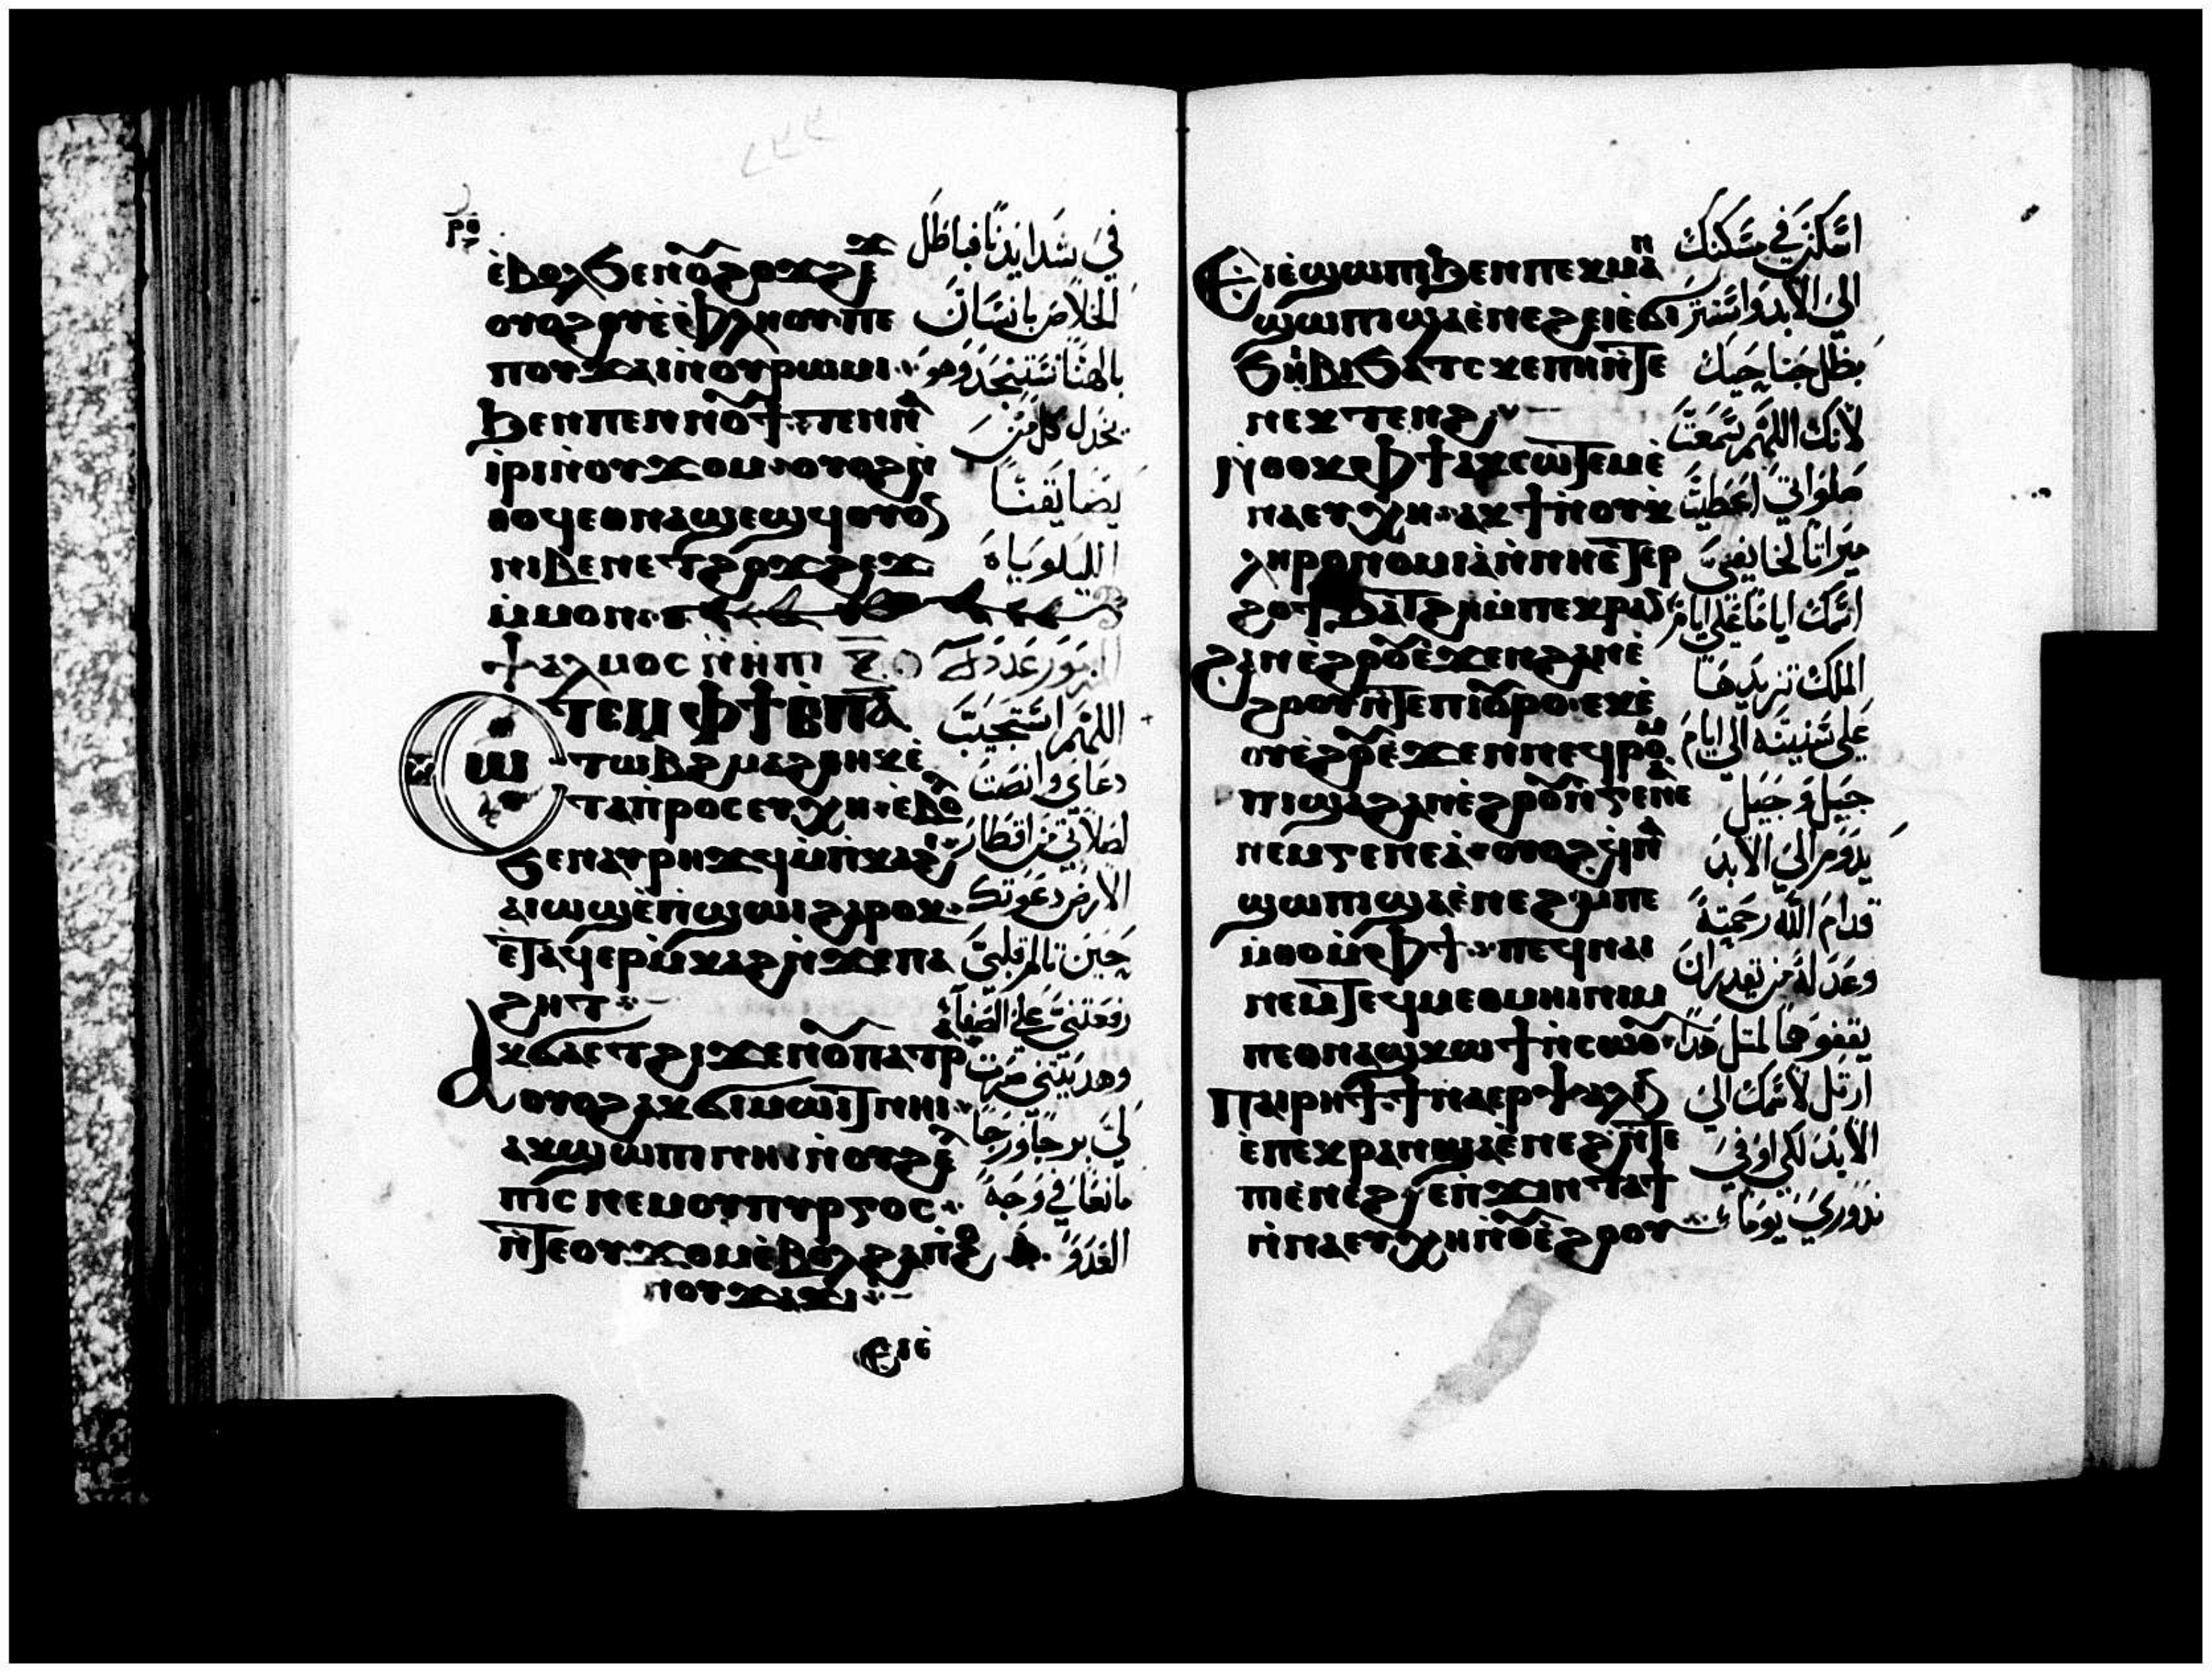 ⲉ̀ⲃⲟⲗϧⲉⲛⲟ̅ϩⲟϫϩⲉϫ
ⲟⲩⲟϩ ⲟⲩⲉ̀ⲫⲗⲏⲟⲩ ⲡⲉ
ⲡⲟⲩϫⲁⲓ ⲛ̀ⲟⲩⲣⲱⲙⲓ
ϧⲉⲛⲡⲉⲛⲛⲟⲩϯ ⲡⲉⲛⲛⲁ
ⲓⲣⲓ ⲛ̀ⲟⲩϫⲟⲙ ⲟⲩⲟϩ ⲛ̀
ⲑⲟϥ ⲉⲑⲛⲁϣⲉϣϥ ⲟⲩⲟⲛ
ⲛⲓⲃⲉⲛ ⲉⲧϩⲟϫϩⲉϫ
ⲙ̀ⲙⲟⲛ
ⲯⲁⲗⲙⲟⲥ
ⲥⲱⲧⲉⲙ ⲫϯ ⲉ̀ⲡⲁ
ⲧⲱⲃϩ ⲙⲁϩⲑⲏⲕ ⲉ̀
ⲧⲁⲡⲣⲟⲥⲉⲩⲭⲏ ⲉ̀ⲃⲟⲗ
ϧⲉⲛⲁⲩⲣⲏϫϥ ⲙ̀ⲡⲕⲁϩⲓ
ⲁⲓⲱϣ ⲉ̀ⲡϣⲱⲓ ϩⲁⲣⲟⲕ
ⲉ̀ⲧⲁϥⲉⲣⲙ̀ⲕⲁϩ ⲛ̀ϫⲉⲡⲁ
ϩⲏⲧ
ⲁⲕϭⲁⲥⲧ ϩⲓϫⲉⲛⲟ̅ⲡⲁⲧⲣ
ⲁ ⲟⲩⲟϩ ⲁⲕϭⲓⲙⲱⲓⲧ ⲛⲏⲓ
ⲁⲕϣⲱⲡⲓ ⲛⲏⲓ ⲛ̀ⲟⲩϩⲉⲗ
ⲡⲓⲥ ⲛⲉⲙⲟⲩⲡⲩⲣⲅⲟⲥ
ⲛ̀ⲧⲉⲟⲩϫⲟⲙ ⲉ̀ⲃⲟⲗ ϩⲁⲡϩⲟ
ⲛⲟⲩϫⲁϫⲓ
ⲉⲓⲉ̀
في شدايدنا فباطل
الخلاص بانسان
بالهنا نستنجد وهو
يخدل كل من
يضايقنا
الليلوياه
المزمور عدد
اللهم استجيب
دعاي وانصت
لصلاتي من اقطار
الارض دعوتك
حين تالم قلبي
رفعتني على الصفاة
وهديتني صرت
لي برجا ورجا
مانعا في وجه
العدو
ⲉⲓⲉ̀ϣⲱⲡⲓ ϧⲉⲛⲡⲉⲕⲙⲁⲛ
ϣⲱⲡⲓ ϣⲁⲉ̀ⲛⲉϩ ⲉⲓⲉ̀ϭⲓ
ϧⲏⲓⲃⲓ ϧⲁⲧⲥⲕⲉⲡⲏ ⲛ̀ⲧⲉ
ⲛⲉⲕⲧⲉⲛϩ
ⲛ̀ⲑⲟⲕ ⲫϯ ⲁⲕⲥⲱⲧⲉⲙ ⲉ̀
ⲛⲁⲉⲩⲭⲏ ⲁⲕϯ ⲛ̀ⲟⲩⲕ̀
ⲗⲏⲣⲟⲛⲟⲙⲓⲁ ⲛ̀ⲛⲏⲉⲧⲉⲣ
ϩⲟϯ ϧⲁⲧϩⲏ ⲙ̀ⲡⲉⲕⲣⲁⲛ
ϩⲁⲛⲉ̀ϩⲟⲟⲩ ⲉ̀ϫⲉⲛϩⲁⲛⲉ̀
ϩⲟⲟⲩ ⲛ̀ⲧⲉⲡⲓⲟⲩⲣⲟ ⲉⲕⲉ̀
ⲟⲩⲉ̀ϩⲟⲩⲉ̀ϫⲉⲛⲛⲉϥⲣⲟⲙ
ⲡⲓ ϣⲁϩⲁⲛⲉ̀ϩⲟⲟⲩ ⲛ̀ⲅⲉⲛⲉⲁ
ⲛⲉⲙⲅⲉⲛⲉⲁ̀ ⲟⲩⲟϩ ϥⲛⲁ
ϣⲱⲡⲓ ϣⲁⲉ̀ⲛⲉϩ ⲙ̀ⲡⲉ
ⲙ̀ⲑⲟ ⲙ̀ⲫϯ ⲡⲉϥⲛⲁⲓ
ⲛⲉⲙⲧⲉϥⲙⲉⲑⲙⲏⲓ ⲛⲓⲙ
ⲡⲉⲑⲛⲁϣⲕⲱϯ ⲛ̀ⲥⲱⲟⲩ
ⲡⲁⲓⲣⲏϯ ϯⲛⲁⲉⲣⲯⲁⲗⲓⲛ
ⲉ̀ⲡⲉⲕⲣⲁⲛ ϣⲁⲉ̀ⲛⲉϩ ⲛ̀ⲧⲉ
ⲡⲓⲉ̀ⲛⲉϩ ⲉⲡ̀ϫⲓⲛⲧⲁϯ
ⲛ̀ⲛⲁⲉⲩⲭⲏ ⲛ̀ⲟ̅ⲉ̀ϩⲟⲟⲩ
اسكن في مسكنك
الي الابد واستتر
بظل جناحيك
لانك اللهم سمعت
صلواتي اعطيت
ميراثا لخايفي
اسمك اياما على ايام
الملك تزيدها
على سنينه الي ايام
جيل وجيل
يدوم الي الابد
قدام الله رحمته
وعدله من يقدر ان
يقفوهما لمثل هذا
ارتل لاسمك الي
الابد لكي اوفي
نذوري يوما